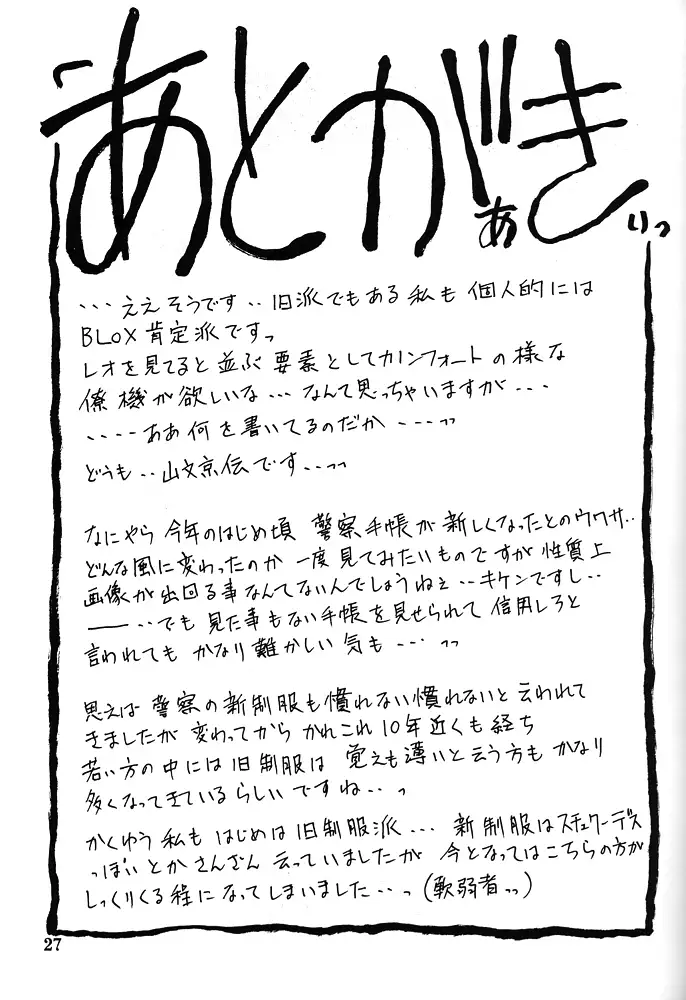 あとがきぃっ
・・・ええそうです・・旧派でもある私も 個人的には
BLOX肯定派ですっ
レオを見てると並ぶ要素としてカノンフォートの様な
僚機が欲しいな・・・なんて思っちゃいますが・・・
・・・・ああ何を書いてるのだか・・・っっ
どうも・・山文京伝です・・っっ
なにやら今年のはじめ頃 警察手帳が新しくなったとのウワサ・・
どんな風に変わったのか 一度見てみたいものですが性質上
画像が出回る事なんてないんでしょうねぇ・・キケンですし・・
――・・でも 見た事もない手帳を見せられて 信用しろと
言われても かなり難かしい気も・・・っっ
思えば 警察の新制服も慣れない慣れないと云われて
きましたが 変わってから かれこれ10年近くも経ち
若い方の中には旧制服は 覚えも薄いと云う方も かなり
多くなってきているらしいですね・・っ
かくゆう私も はじめは旧制服派・・・ 新制服はスチュワーデス
っぽいとかさんざん云っていましたが 今となってはこちらの方が
しっくりくる程になってしまいました・・っ（軟弱者っっ）
27